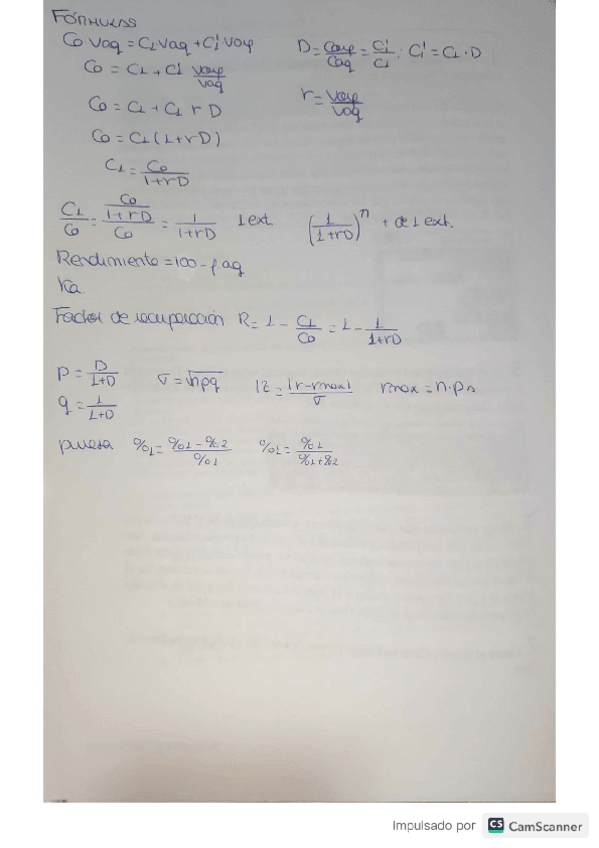 FÓRMULAS
C0 Vaq = C1 Vaq + C1' Vorg D = Corg/Caq = C1'/C1 : C1' = C1 · D
C0 = C1 + C1' Vorg/Vaq r = Vorg/Vaq
C0 = C1 + C1 r D
C0 = C1 (1 + rD)
C1 = C0/(1+rD)
C1/C0 = (C0/(1+rD))/C0 = 1/(1+rD) 1 ext. (1/(1+rD))^n + de 1 ext.
Rendimiento = 100 - f.aq
Ka
Factor de recuperación R = 1 - C1/C0 = 1 - 1/(1+rD)
p = D/(1+D) σ = √npq |z| = |r-rmax|/σ rmax = n·p
q = 1/(1+D)
pureza %1 = (%1 - %2)/%1 %1 = %1/(%1+%2)
Impulsado por CS CamScanner